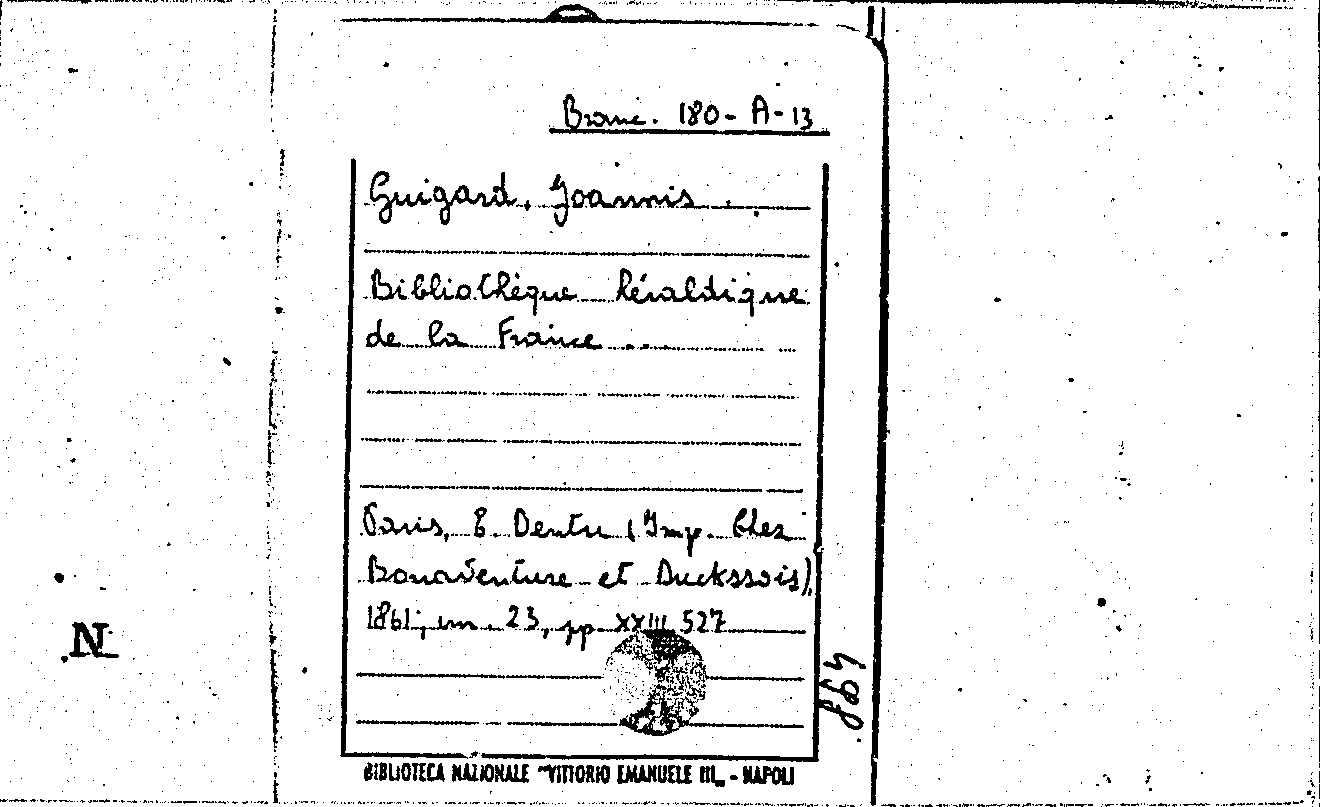 Branc. 180-A-13
Guigard, Joannis.
Bibliothèque héraldique
de la France ...
Paris, E. Dentu (Imp. Chez
Bonaventure et Duckssois),
1861; cm. 23, pp. XXIII 527
498.
BIBLIOTECA NAZIONALE "VITTORIO EMANUELE III„ - NAPOLI
N